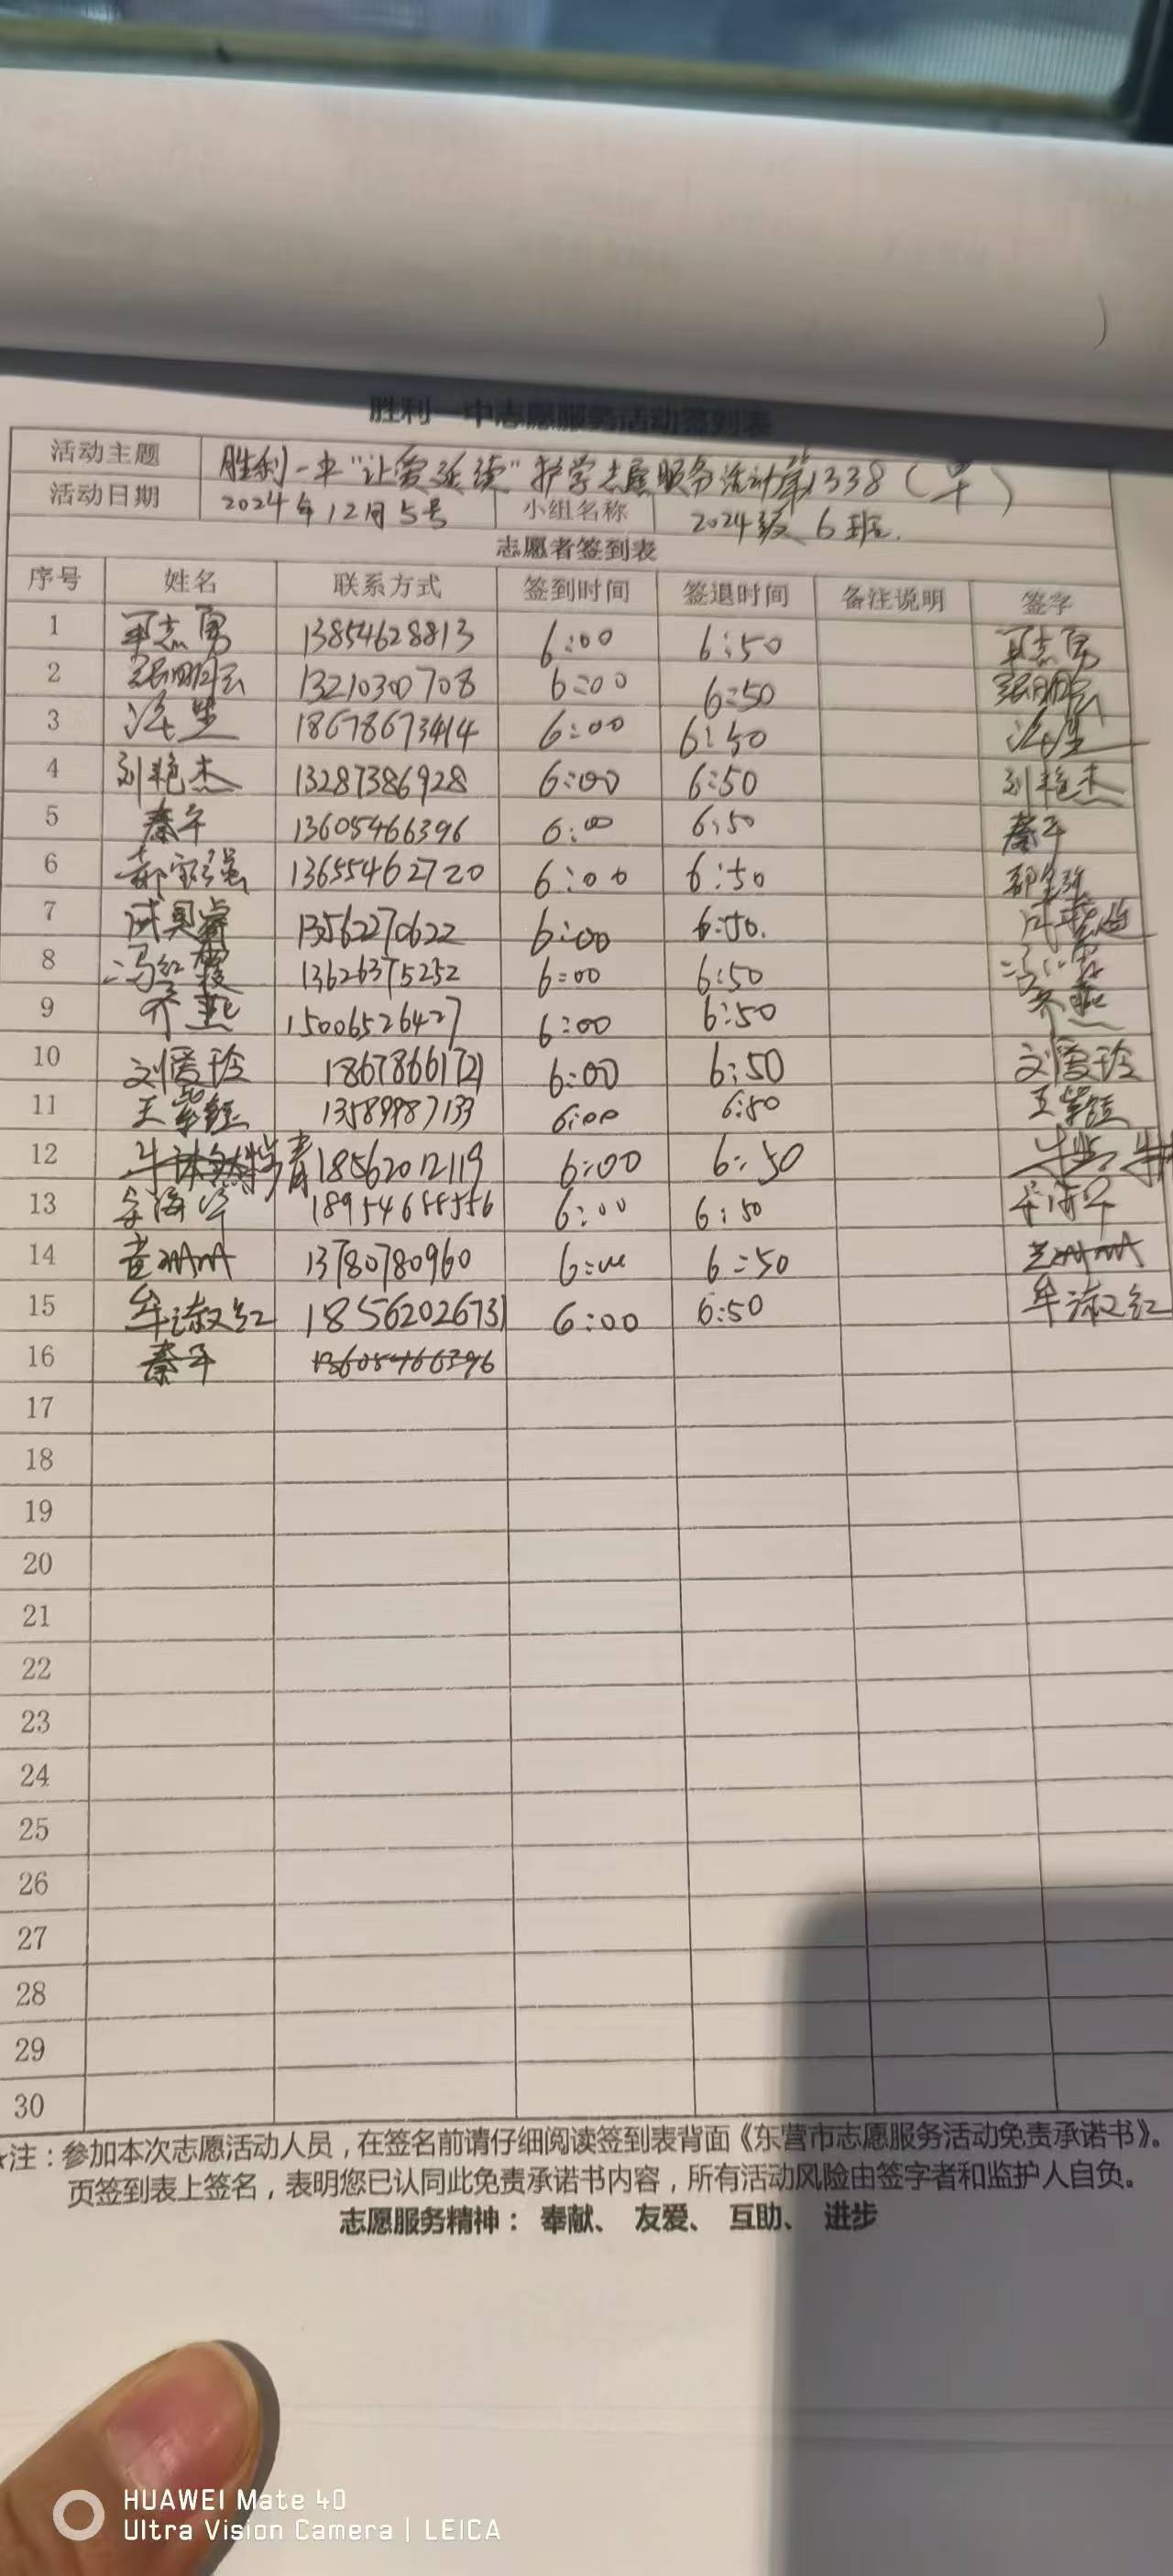 胜利一中志愿服务活动签到表
活动主题 胜利一中"让爱延续"护学志愿服务活动第1338(早)
活动日期 2024年12月5号 小组名称 2024级6班.
志愿者签到表
序号 姓名 联系方式 签到时间 签退时间 备注说明 签字
1 志勇 13854628813 6:00 6:50 志勇
2 13210300708 6:00 6:50
3 18678673414 6:00 6:50
4 刘艳杰 13287386928 6:00 6:50 刘艳杰
5 秦平 13605466396 6:00 6:50 秦平
6 郝宝强 13655462720 6:00 6:50 郝宝强
7 13562270622 6:00 6:50.
8 冯红霞 13626375252 6:00 6:50
9 乔燕 15006526427 6:00 6:50 乔燕
10 刘爱玲 18678661721 6:00 6:50 刘爱玲
11 王紫钰 13589987133 6:00 6:50 王紫钰
12 18562012119 6:00 6:50
13 6:00 6:50
14 13780780960 6:00 6:50
15 牟淑红 18562026731 6:00 6:50 牟淑红
16 秦平 13605466396
17
18
19
20
21
22
23
24
25
26
27
28
29
30
注：参加本次志愿活动人员，在签名前请仔细阅读签到表背面《东营市志愿服务活动免责承诺书》。
页签到表上签名，表明您已认同此免责承诺书内容，所有活动风险由签字者和监护人自负。
志愿服务精神： 奉献、 友爱、 互助、 进步
HUAWEI Mate 40
Ultra Vision Camera | LEICA